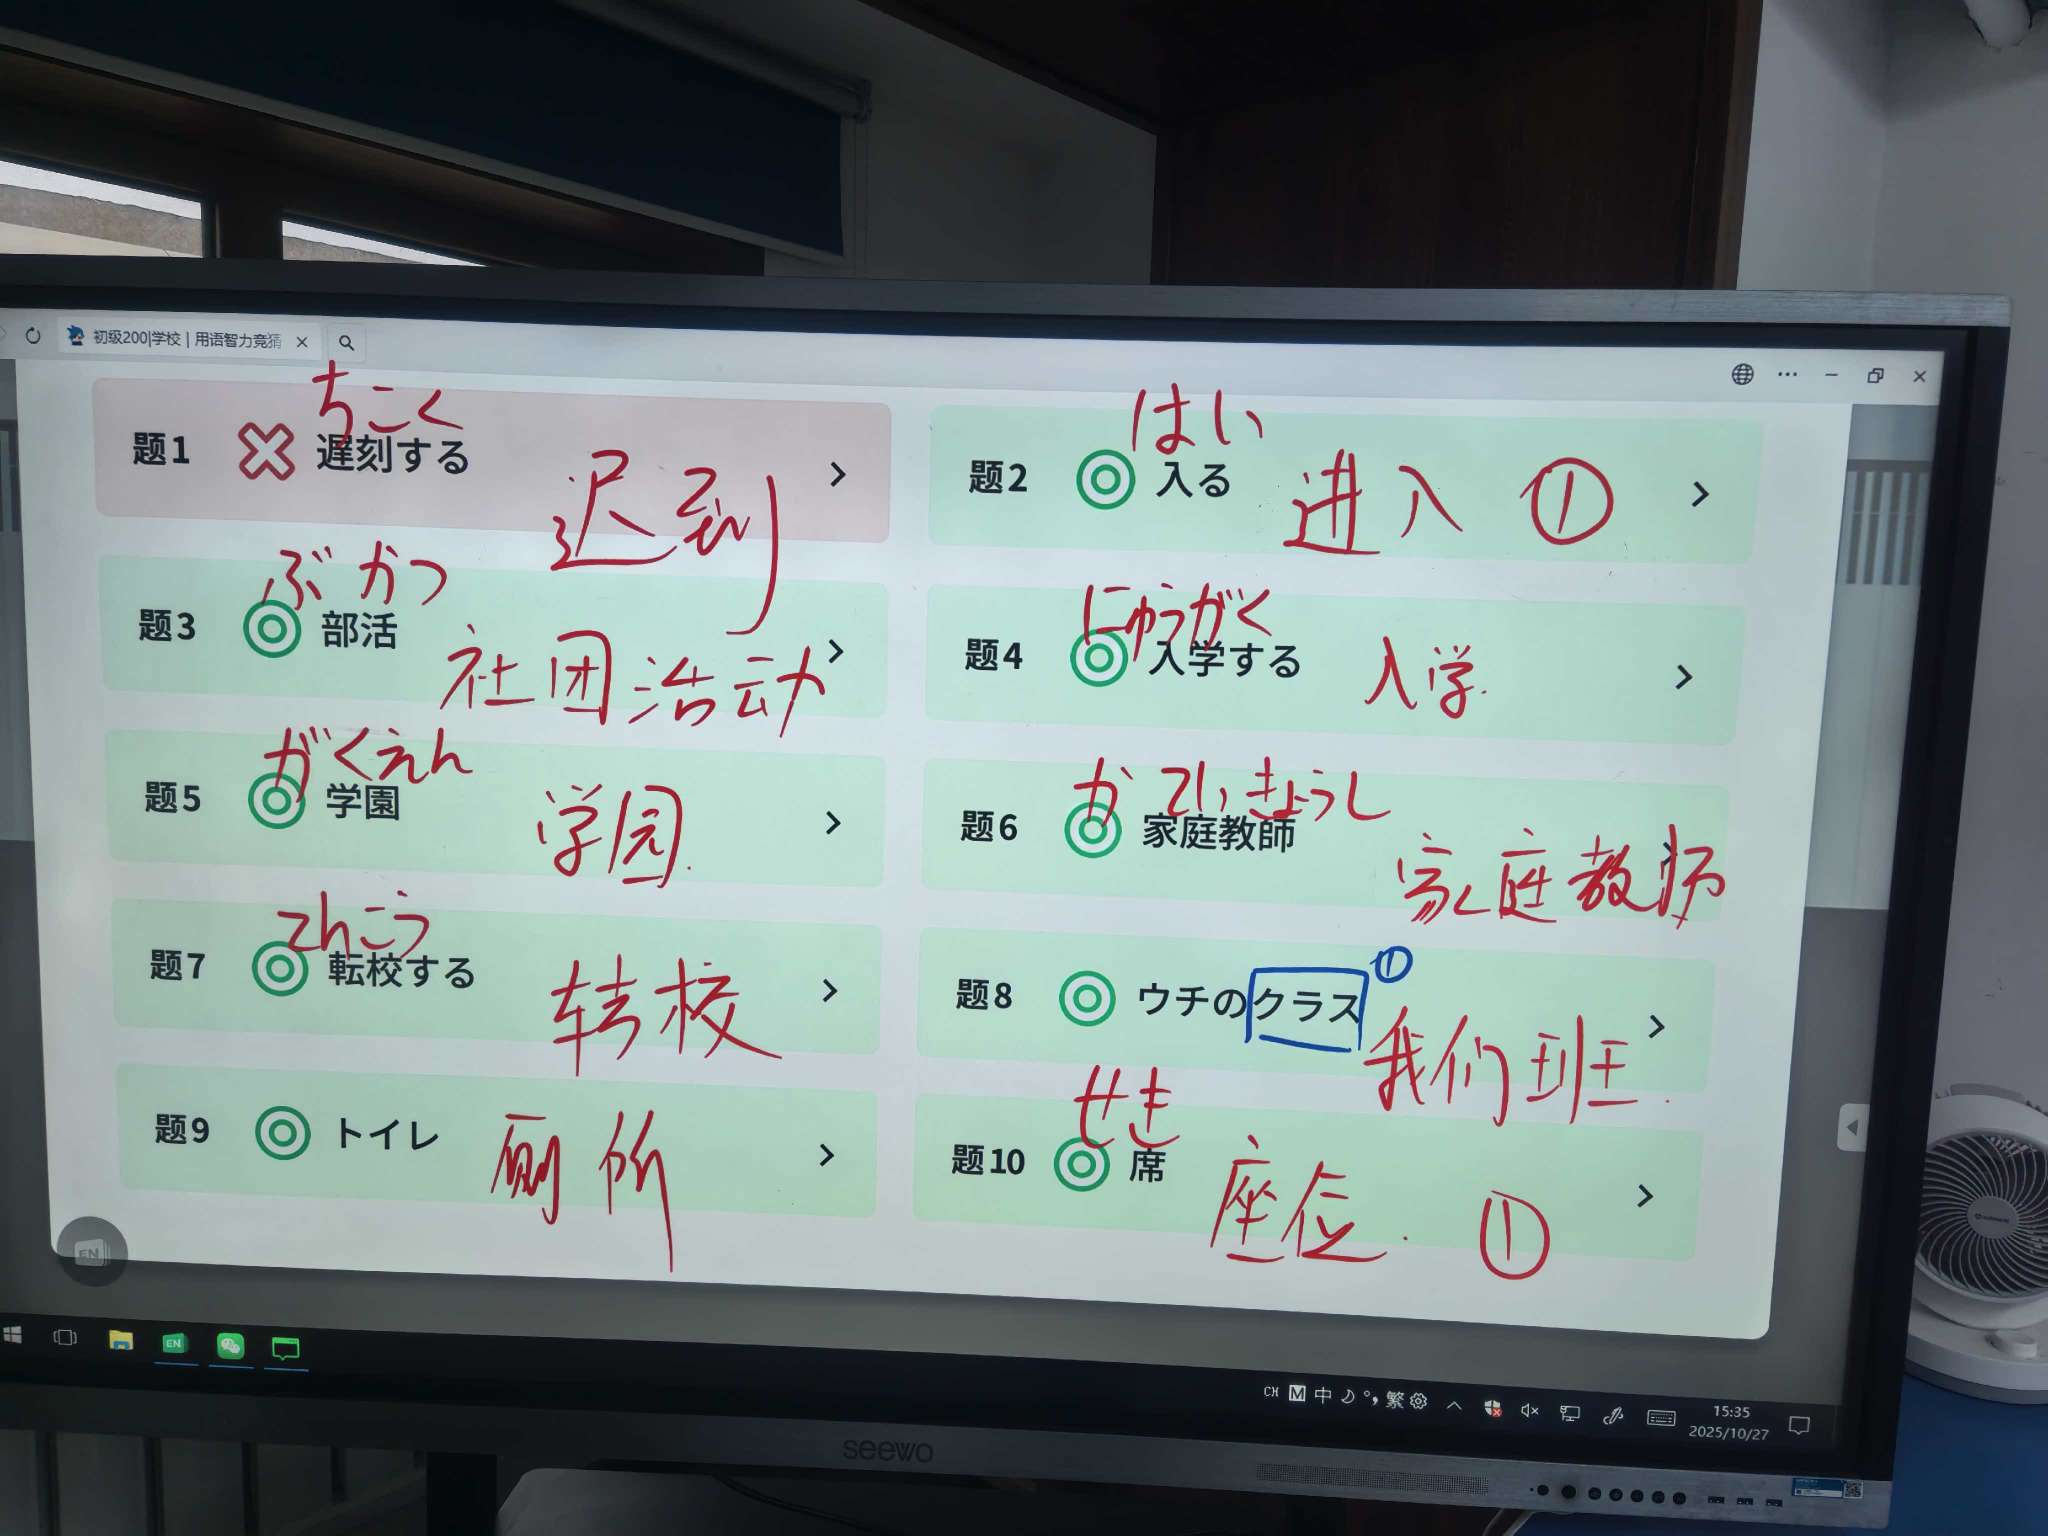 初级200|学校 | 用语智力竞猜
ちこく
题1 遅刻する 迟到
はい
题2 入る 进入 ①
ぶかつ
题3 部活 社团活动
にゅうがく
题4 入学する 入学.
がくえん
题5 学園 学园.
かていきょうし
题6 家庭教師 家庭教师
てんこう
题7 転校する 转校
①
题8 ウチのクラス 我们班.
题9 トイレ 厕所
せき
题10 席 座位. ①
EN
EN
CH M 中 繁
15:35
2025/10/27
seewo